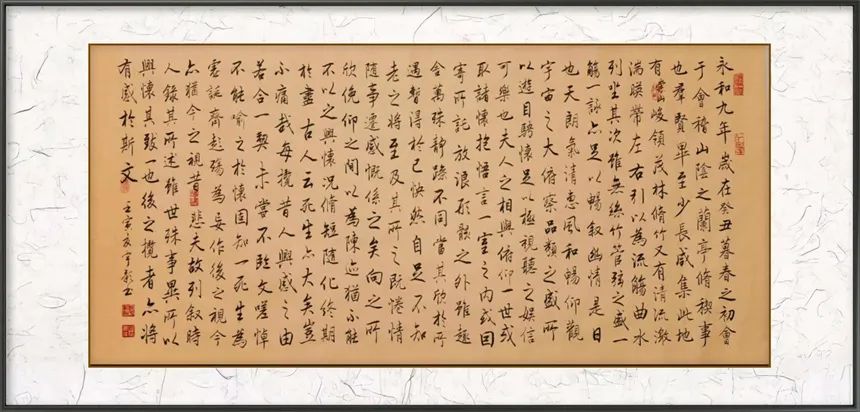 永和九年歲在癸丑暮春之初會
于會稽山陰之蘭亭脩禊事
也羣賢畢至少長咸集此地
有崇山峻領茂林脩竹又有清流激
湍暎帶左右引以為流觴曲水
列坐其次雖無絲竹管弦之盛一
觴一詠亦足以暢叙幽情是日
也天朗氣清惠風和暢仰觀
宇宙之大俯察品類之盛所
以遊目騁懷足以極視聽之娛信
可樂也夫人之相與俯仰一世或
取諸懷抱悟言一室之內或因
寄所託放浪形骸之外雖趣
舍萬殊靜躁不同當其欣於所
遇暫得於己快然自足不知
老之將至及其所之既惓情
隨事遷感慨係之矣向之所
欣俛仰之間以為陳迹猶不能
不以之興懷況脩短隨化終期
於盡古人云死生亦大矣豈
不痛哉每攬昔人興感之由
若合一契未嘗不臨文嗟悼
不能喻之於懷固知一死生為
虛誕齊彭殤為妄作後之視今
亦猶今之視昔悲夫故列叙時
人錄其所述雖世殊事異所以
興懷其致一也後之攬者亦將
有感於斯文
壬寅夏